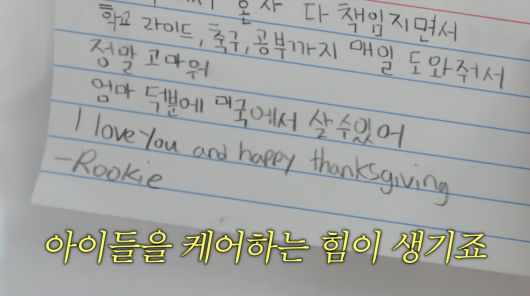 혼자 다 책임지면서
학교 라이드, 축구, 공부까지 매일 도와줘서
정말 고마워
엄마 덕분에 미국에서 살 수 있어
I love You and happy thanksgiving
-Rookie
아이들을 케어하는 힘이 생기죠